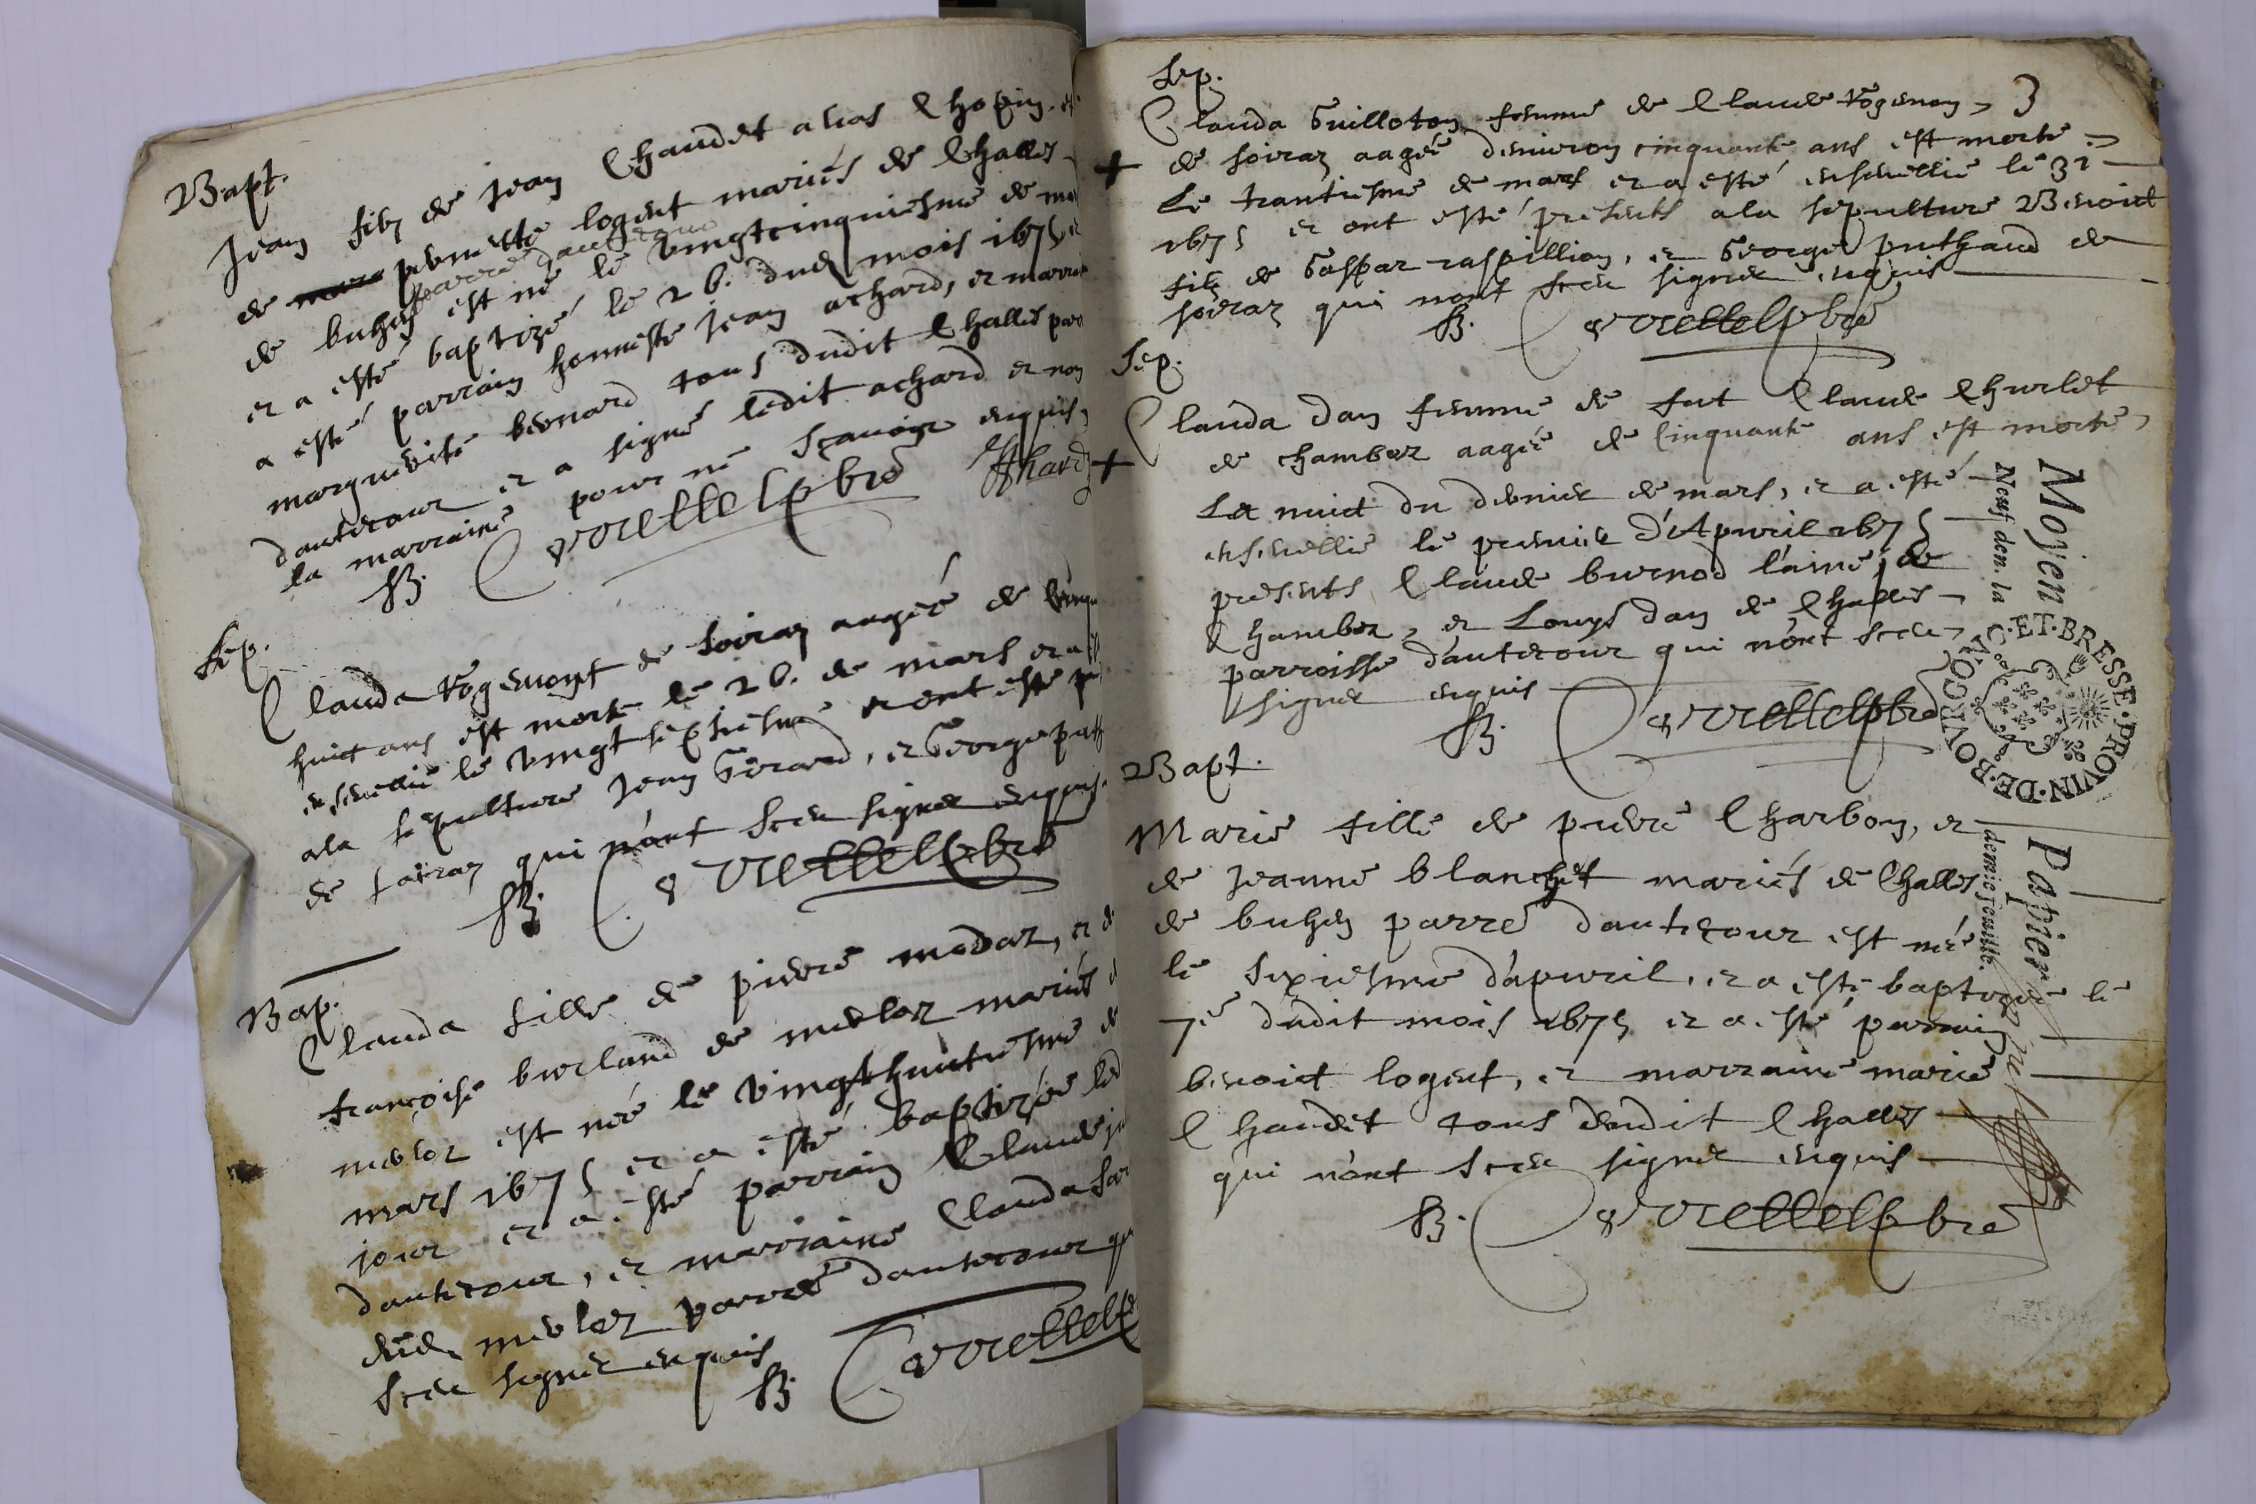 Bapt.
Jean filz de Jean Chaudet alias Chopin. et
de pernette logent mariés de Challes
parre dautecour
de buhen est né le vingtcinquiesme de ma
et a esté baptizé le 26. dud. mois 1675 et
a esté parrain honneste Jean achard, et marrai
marguerite bernard tous dudit Challes parr
dautecour et a signé ledit achard et non
la marraine pour ne sçavoir enquis,
Achard
Sep.
Clauda de soiraz aagée de
huict ans est morte le 26. de mars et a esté
ensevellie le vingtseptiesme et ont esté pr
a la sepulture Jean Gerard, et George put
de soiraz qui n'ont sceu signer enquis.
Bap.
Clauda fille de pierre modaz, et d
françoise burland de merloz mariés d
merloz est née le vingthuictiesme de
mars 1675 et a esté baptizée led
jour et a esté parrain Claude
dautecour, et marraine Clauda
dud. merloz parre dautecour qu
sceu signer enquis
3
Sep.
Clauda Guilloton femme de Claude
de soiraz aagée denviron cinquante ans est morte
Le trantiesme de mars et a esté ensevellie le 31
1675 et ont esté presents a la sepulture Benoict
filz de Gaspar raspillion, et George puthaud de
soiraz qui nont sceu signer enquis
Sep.
Clauda dan femme de fut Claude Churlet
de chamber aagée de Cinquante ans est morte
La nuict du dernier de mars, et a esté
ensevellie le premier d'Apvril 1675
presents Claude burnod l'aine de
Chamber, et Louys dan de Challes
parroisse dautecour qui n'ont sceu
signer enquis
Bapt.
Marie fille de pierre Charbon, et
de Jeanne blanchet mariés de Challes
de buhen parre dautecour est née
le sixiesme d'apvril, et a esté baptizée le
7e dudit mois 1675 et a esté parrain
benoict logent, et marraine marie
Chaudet tous dudit Challes
qui n'ont sceu signer enquis
Moyen Papier
Neuf den. la demie feuille.
PROVIN·DE·BOVRGO ET·BRESSE